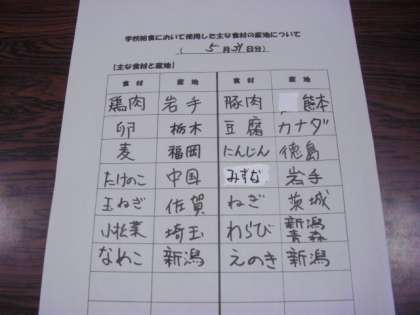 学校給食において使用した主な食材の産地について
( 5月31日分)
【主な食材と産地】
食材 産地 食材 産地
鶏肉 岩手 豚肉 熊本
卵 栃木 豆腐 カナダ
麦 福岡 にんじん 徳島
たけのこ 中国 みずな 岩手
玉ねぎ 佐賀 ねぎ 茨城
小松菜 埼玉 わらび 新潟 青森
なめこ 新潟 えのき 新潟